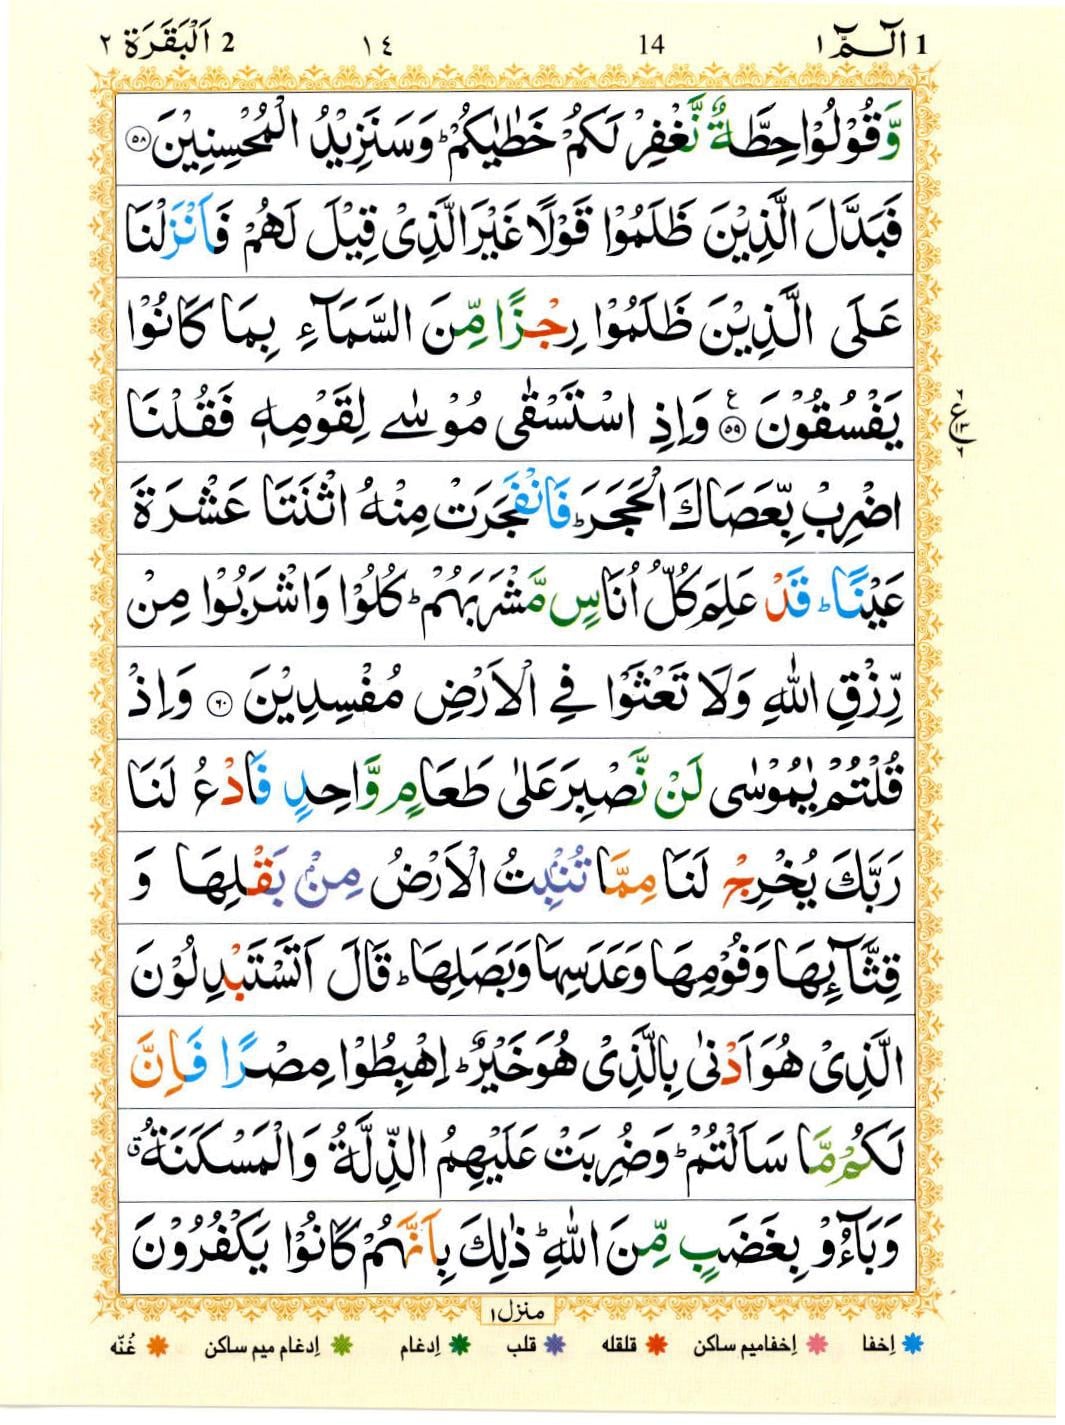 1 الٓـمّٓ ١ 14 ١٤ 2 اَلْبَقَرَة ٢
وَّقُوْلُوْا حِطَّةٌ نَّغْفِرْ لَكُمْ خَطٰيٰكُمْ ؕ وَسَنَزِيْدُ الْمُحْسِنِيْنَ ۝٥٨
فَبَدَّلَ الَّذِيْنَ ظَلَمُوْا قَوْلًا غَيْرَ الَّذِىْ قِيْلَ لَهُمْ فَاَنْزَلْنَا
عَلَى الَّذِيْنَ ظَلَمُوْا رِجْزًا مِّنَ السَّمَآءِ بِمَا كَانُوْا
يَفْسُقُوْنَ ۝٥٩ ع وَاِذِ اسْتَسْقٰى مُوْسٰى لِقَوْمِهٖ فَقُلْنَا
ع ٦ ١٣ ٦
اضْرِبْ بِّعَصَاكَ الْحَجَرَ ؕ فَانْفَجَرَتْ مِنْهُ اثْنَتَا عَشْرَةَ
عَيْنًا ؕ قَدْ عَلِمَ كُلُّ اُنَاسٍ مَّشْرَبَهُمْ ؕ كُلُوْا وَاشْرَبُوْا مِنْ
رِّزْقِ اللّٰهِ وَلَا تَعْثَوْا فِى الْاَرْضِ مُفْسِدِيْنَ ۝٦٠ وَاِذْ
قُلْتُمْ يٰمُوْسٰى لَنْ نَّصْبِرَ عَلٰى طَعَامٍ وَّاحِدٍ فَادْعُ لَنَا
رَبَّكَ يُخْرِجْ لَنَا مِمَّا تُنْۢبِتُ الْاَرْضُ مِنْۢ بَقْلِهَا وَ
قِثَّآئِهَا وَفُوْمِهَا وَعَدَسِهَا وَبَصَلِهَا ؕ قَالَ اَتَسْتَبْدِلُوْنَ
الَّذِىْ هُوَ اَدْنٰى بِالَّذِىْ هُوَ خَيْرٌ ؕ اِهْبِطُوْا مِصْرًا فَاِنَّ
لَكُمْ مَّا سَاَلْتُمْ ؕ وَضُرِبَتْ عَلَيْهِمُ الذِّلَّةُ وَالْمَسْكَنَةُ ۗ
وَبَآءُوْ بِغَضَبٍ مِّنَ اللّٰهِ ؕ ذٰلِكَ بِاَنَّهُمْ كَانُوْا يَكْفُرُوْنَ
منزل ١
اِخفا اِخفامیم ساکن قلقله قلب اِدغام اِدغام میم ساکن غُنّه